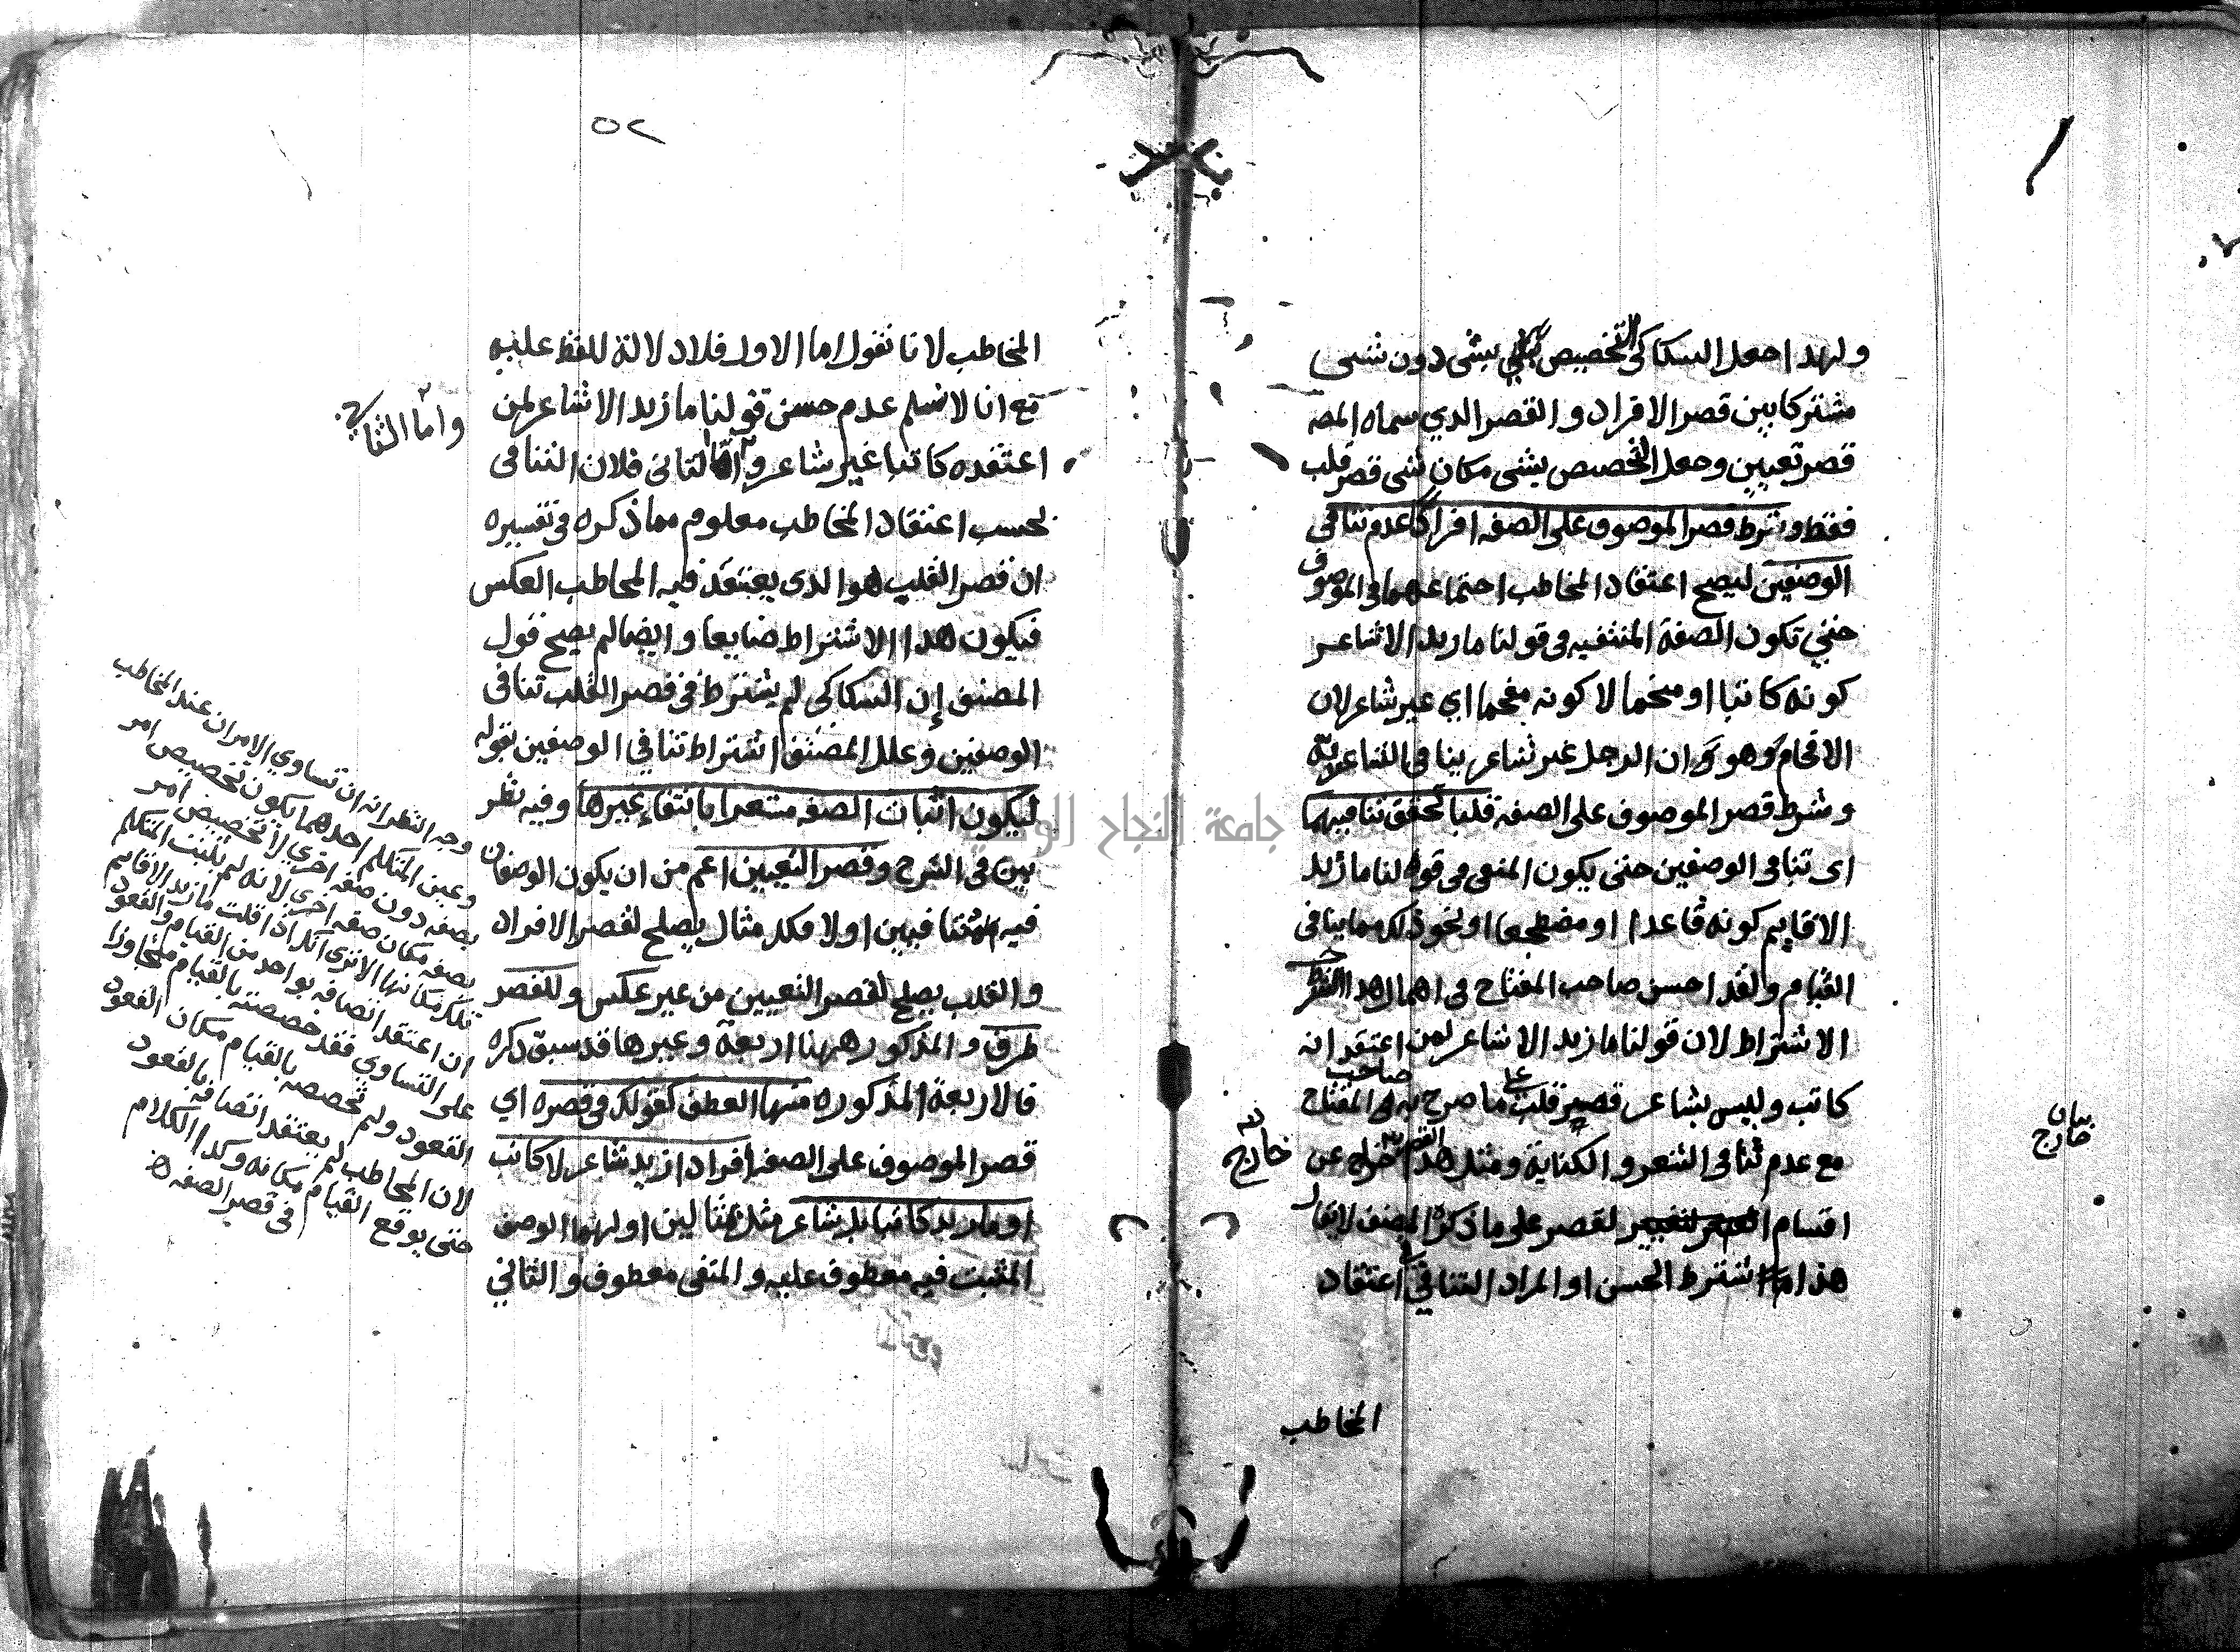 ولهدا جعل السكاكي التخصيص بشي دون شي
مشتركا بين قصر الافراد والقصر الدي سماه المصـ
قصر تعيين وجعل التخصيص بشي مكان شي قصر قلب
فقط وشرط قصر الموصوف على الصفه افرادا عدم تنافي
الوصفين ليصح اعتقاد المخاطب اجتماعهما في الموصوف
حتي تكون الصفة المنتفيه في قولنا ما زيد الا شاعر
كونه كاتبا او منجما لا كونه مفحما اي غير شاعر لان
الافحام وهو وجدان الرجل غير شاعر ينافي الشاعرية
وشرط قصر الموصوف على الصفه قلبا تحقق تنافيهما
اى تنافي الوصفين حتى يكون المنفى في قولنا ما زيد
الا قايم كونه قاعدا او مضطجعا او نحو ذلك مما ينافي
القيام ولقد احسن صاحب المفتاح في اهمال هدا
الاشتراط لان قولنا ما زيد الا شاعر لمن اعتقد انه
كاتب وليس بشاعر قصر قلب على ما صرح به في صاحب المفتاح
مع عدم تنافي الشعر والكتابة ومثل هدا خارج عن
اقسام القصر على ما ذكره المصنف لا يقال
هذا شرط الحسن او المراد التنافي في اعتقاد
خارج
بيان
خارج
المخاطب
٥٢
المخاطب لانا نقول اما الاول فلا دلالة للفظ عليه
مع انا لا نسلم عدم حسن قولنا ما زيد الا شاعر لمن
اعتقده كاتبا غير شاعر واما الثاني فلان التنافي
بحسب اعتقاد المخاطب معلوم مما ذكره في تفسيره
ان قصر القلب هو الدى يعتقد فيه المخاطب العكس
فيكون هدا الاشتراط ضايعا وايضا لم يصح قول
المصنف إن السكاكي لم يشترط في قصر القلب تنافي
الوصفين وعلل المصنف اشتراط تنافي الوصفين بقوله
ليكون اثبات الصفه مشعرا بانتفاء غيرها وفيه نظر
بين في الشرح وقصر التعيين اعم من ان يكون الوصفان
فيه متنافيين او لا فكل مثال يصلح لقصر الافراد
والقلب يصلح لقصر التعيين من غير عكس وللقصر
طرق والمذكور ههنا اربعة وغيرها قد سبق ذكره
فالاربعة المذكوره منها العطف كقولك في قصره اي
قصر الموصوف على الصفه افرادا زيد شاعر لا كاتب
او ما زيد كاتبا بل شاعر مثل بمثالين اولهما الوصف
المثبت فيه معطوف عليه والمنفى معطوف والثاني
واما الثاني
وجه النظر انه ان تساوي الامران عند المخاطب
وعين المتكلم احدهما يكون تخصيص امر
بصفه دون صفه اخري لا تخصيص امر
بصفه مكان صفه اخري لانه لم يثبت المتكلم
تلك مكانها الا ترى انك اذا قلت ما زيد الا قايم
ان اعتقد اتصافه بواحد من القيام والقعود
على التساوي فقد خصصته بالقيام متجاوزا
القعود ولم تخصصه بالقيام مكان القعود
لان المخاطب لم يعتقد اتصافه بالقعود
حتى يوقع القيام مكانه وكدا الكلام
في قصر الصفه
جامعة النجاح الوطنية